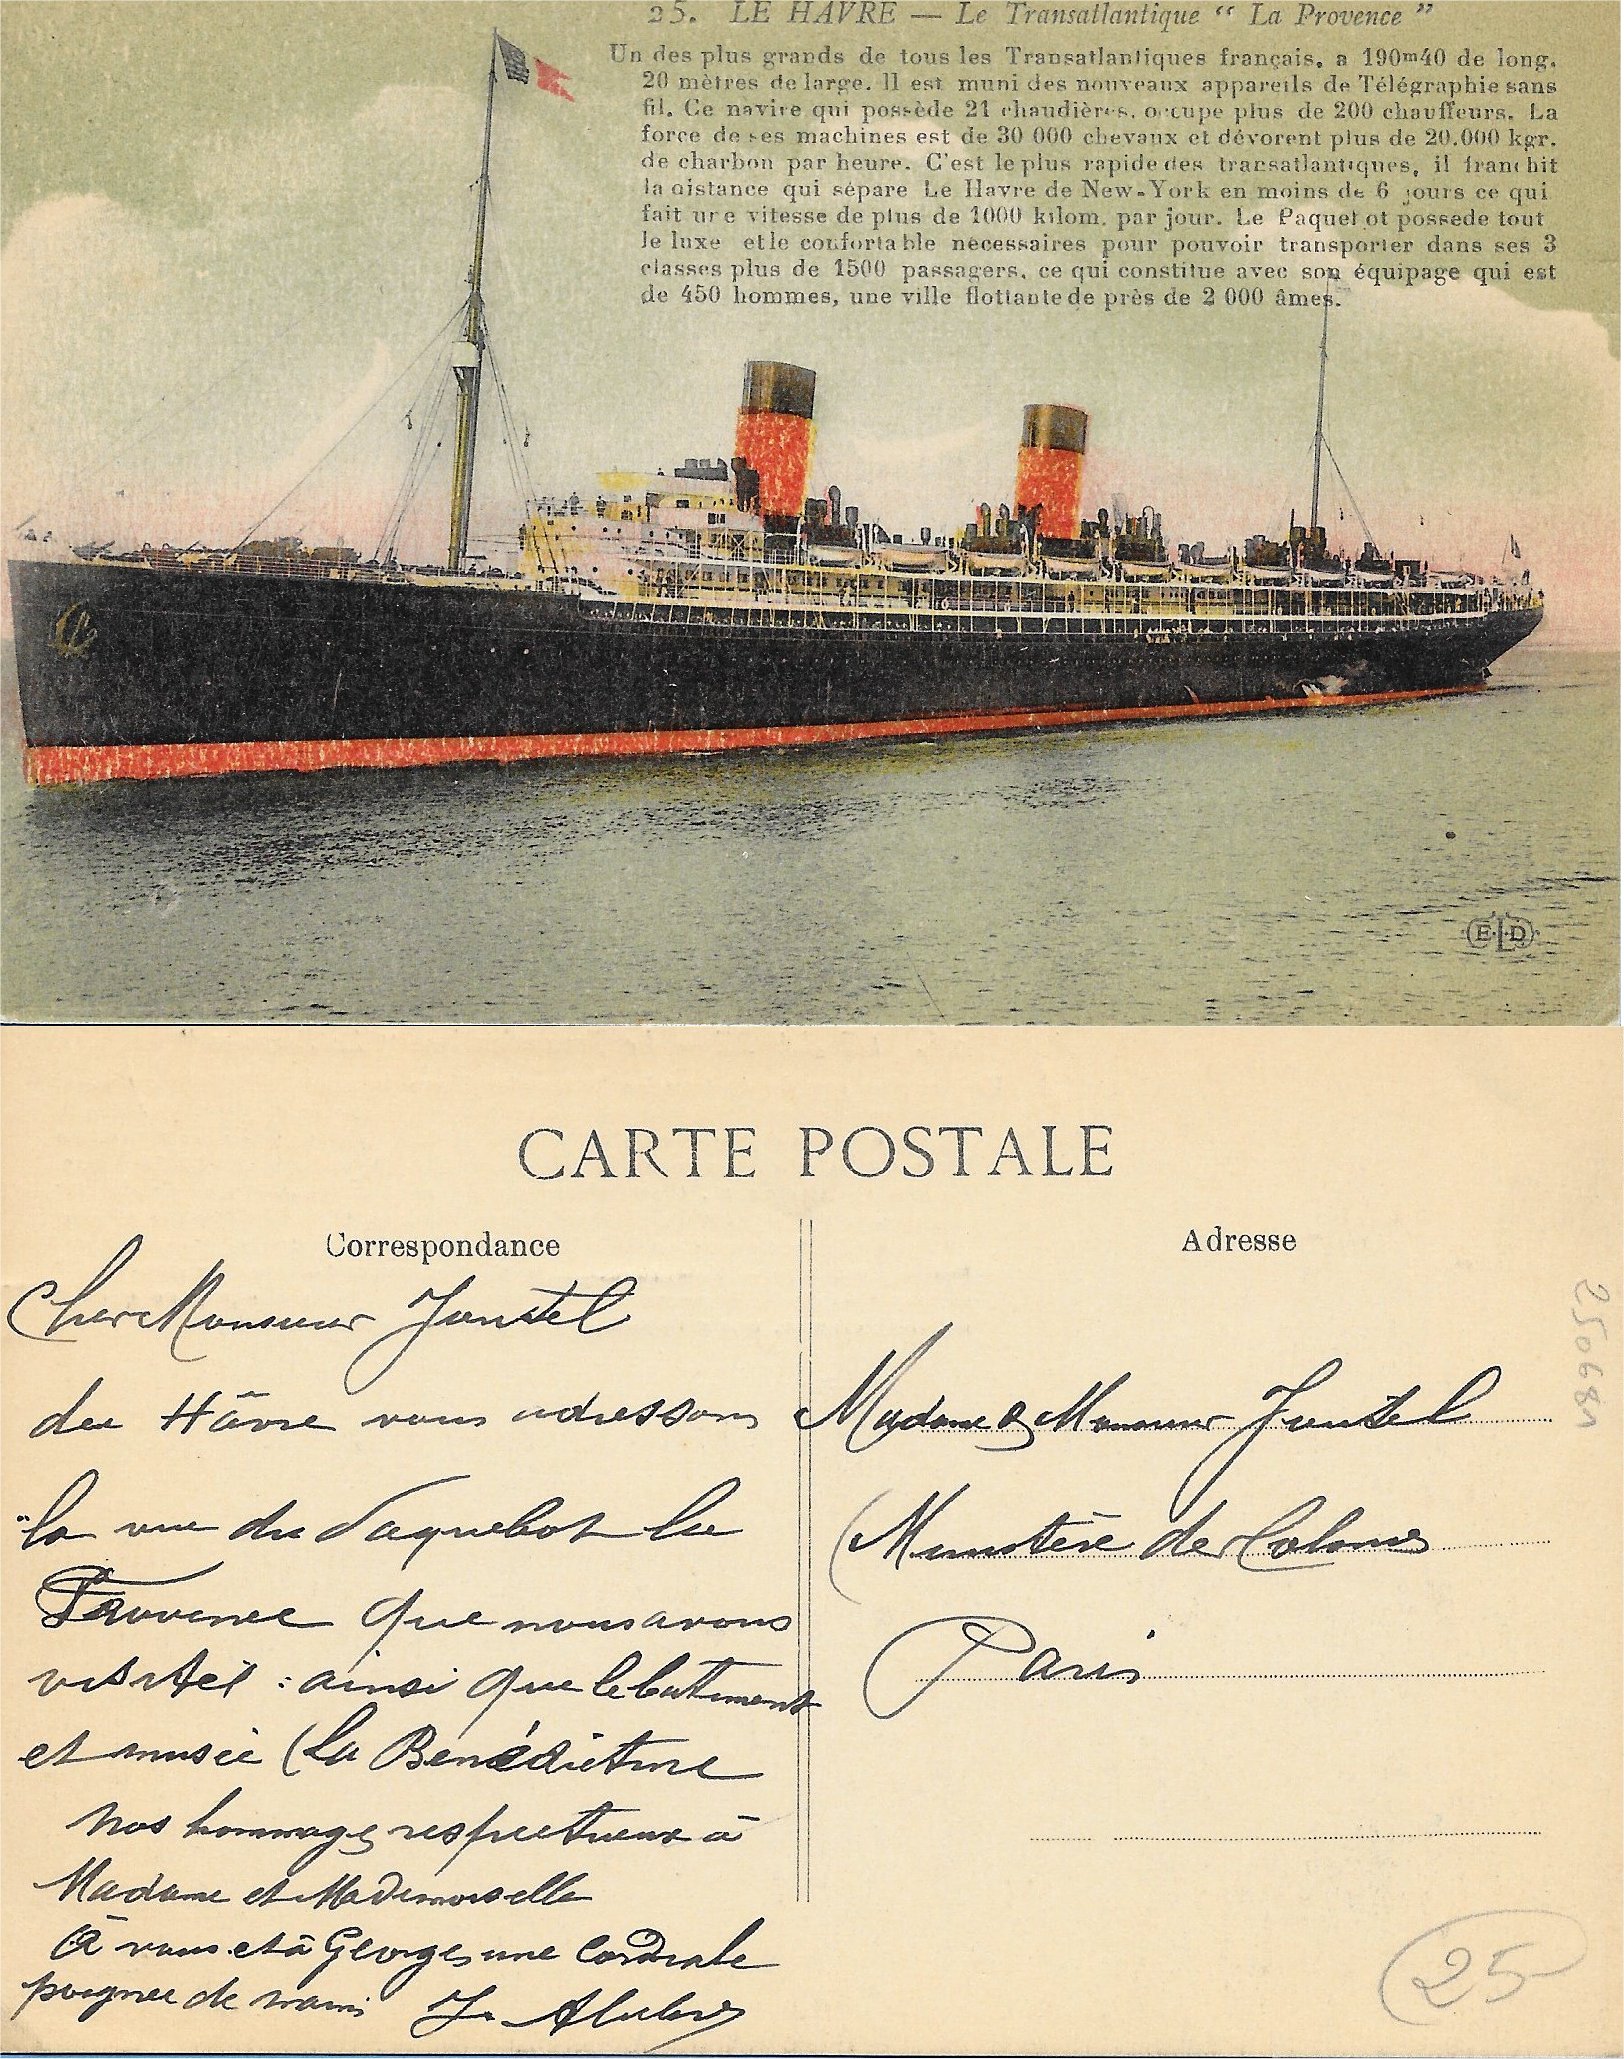 25. LE HAVRE — Le Transatlantique “ La Provence ”
Un des plus grands de tous les Transatlantiques français, a 190m40 de long,
20 mètres de large. Il est muni des nouveaux appareils de Télégraphie sans
fil. Ce navire qui possède 21 chaudières, occupe plus de 200 chauffeurs. La
force de ses machines est de 30 000 chevaux et dévorent plus de 20.000 kgr.
de charbon par heure. C'est le plus rapide des transatlantiques, il franchit
la distance qui sépare Le Havre de New-York en moins de 6 jours ce qui
fait une vitesse de plus de 1000 kilom. par jour. Le Paquebot possede tout
le luxe et le confortable nécessaires pour pouvoir transporter dans ses 3
classes plus de 1500 passagers, ce qui constitue avec son équipage qui est
de 450 hommes, une ville flottante de près de 2 000 âmes.
E.L.D
CARTE POSTALE
Correspondance
Cher Monsieur Joustel
du Hâvre vous adressons
la vue du Paquebot La
Provence que nous avons
visitéé : ainsi que le batiment
et musée (La Bénédictine
Nos hommages respectueux à
Madame et Mademoiselle
À vous et à Georges une Cordiale
poignée de main J.
Adresse
Madame & Monsieur Joustel
Ministère des Colonies
Paris
250681
25